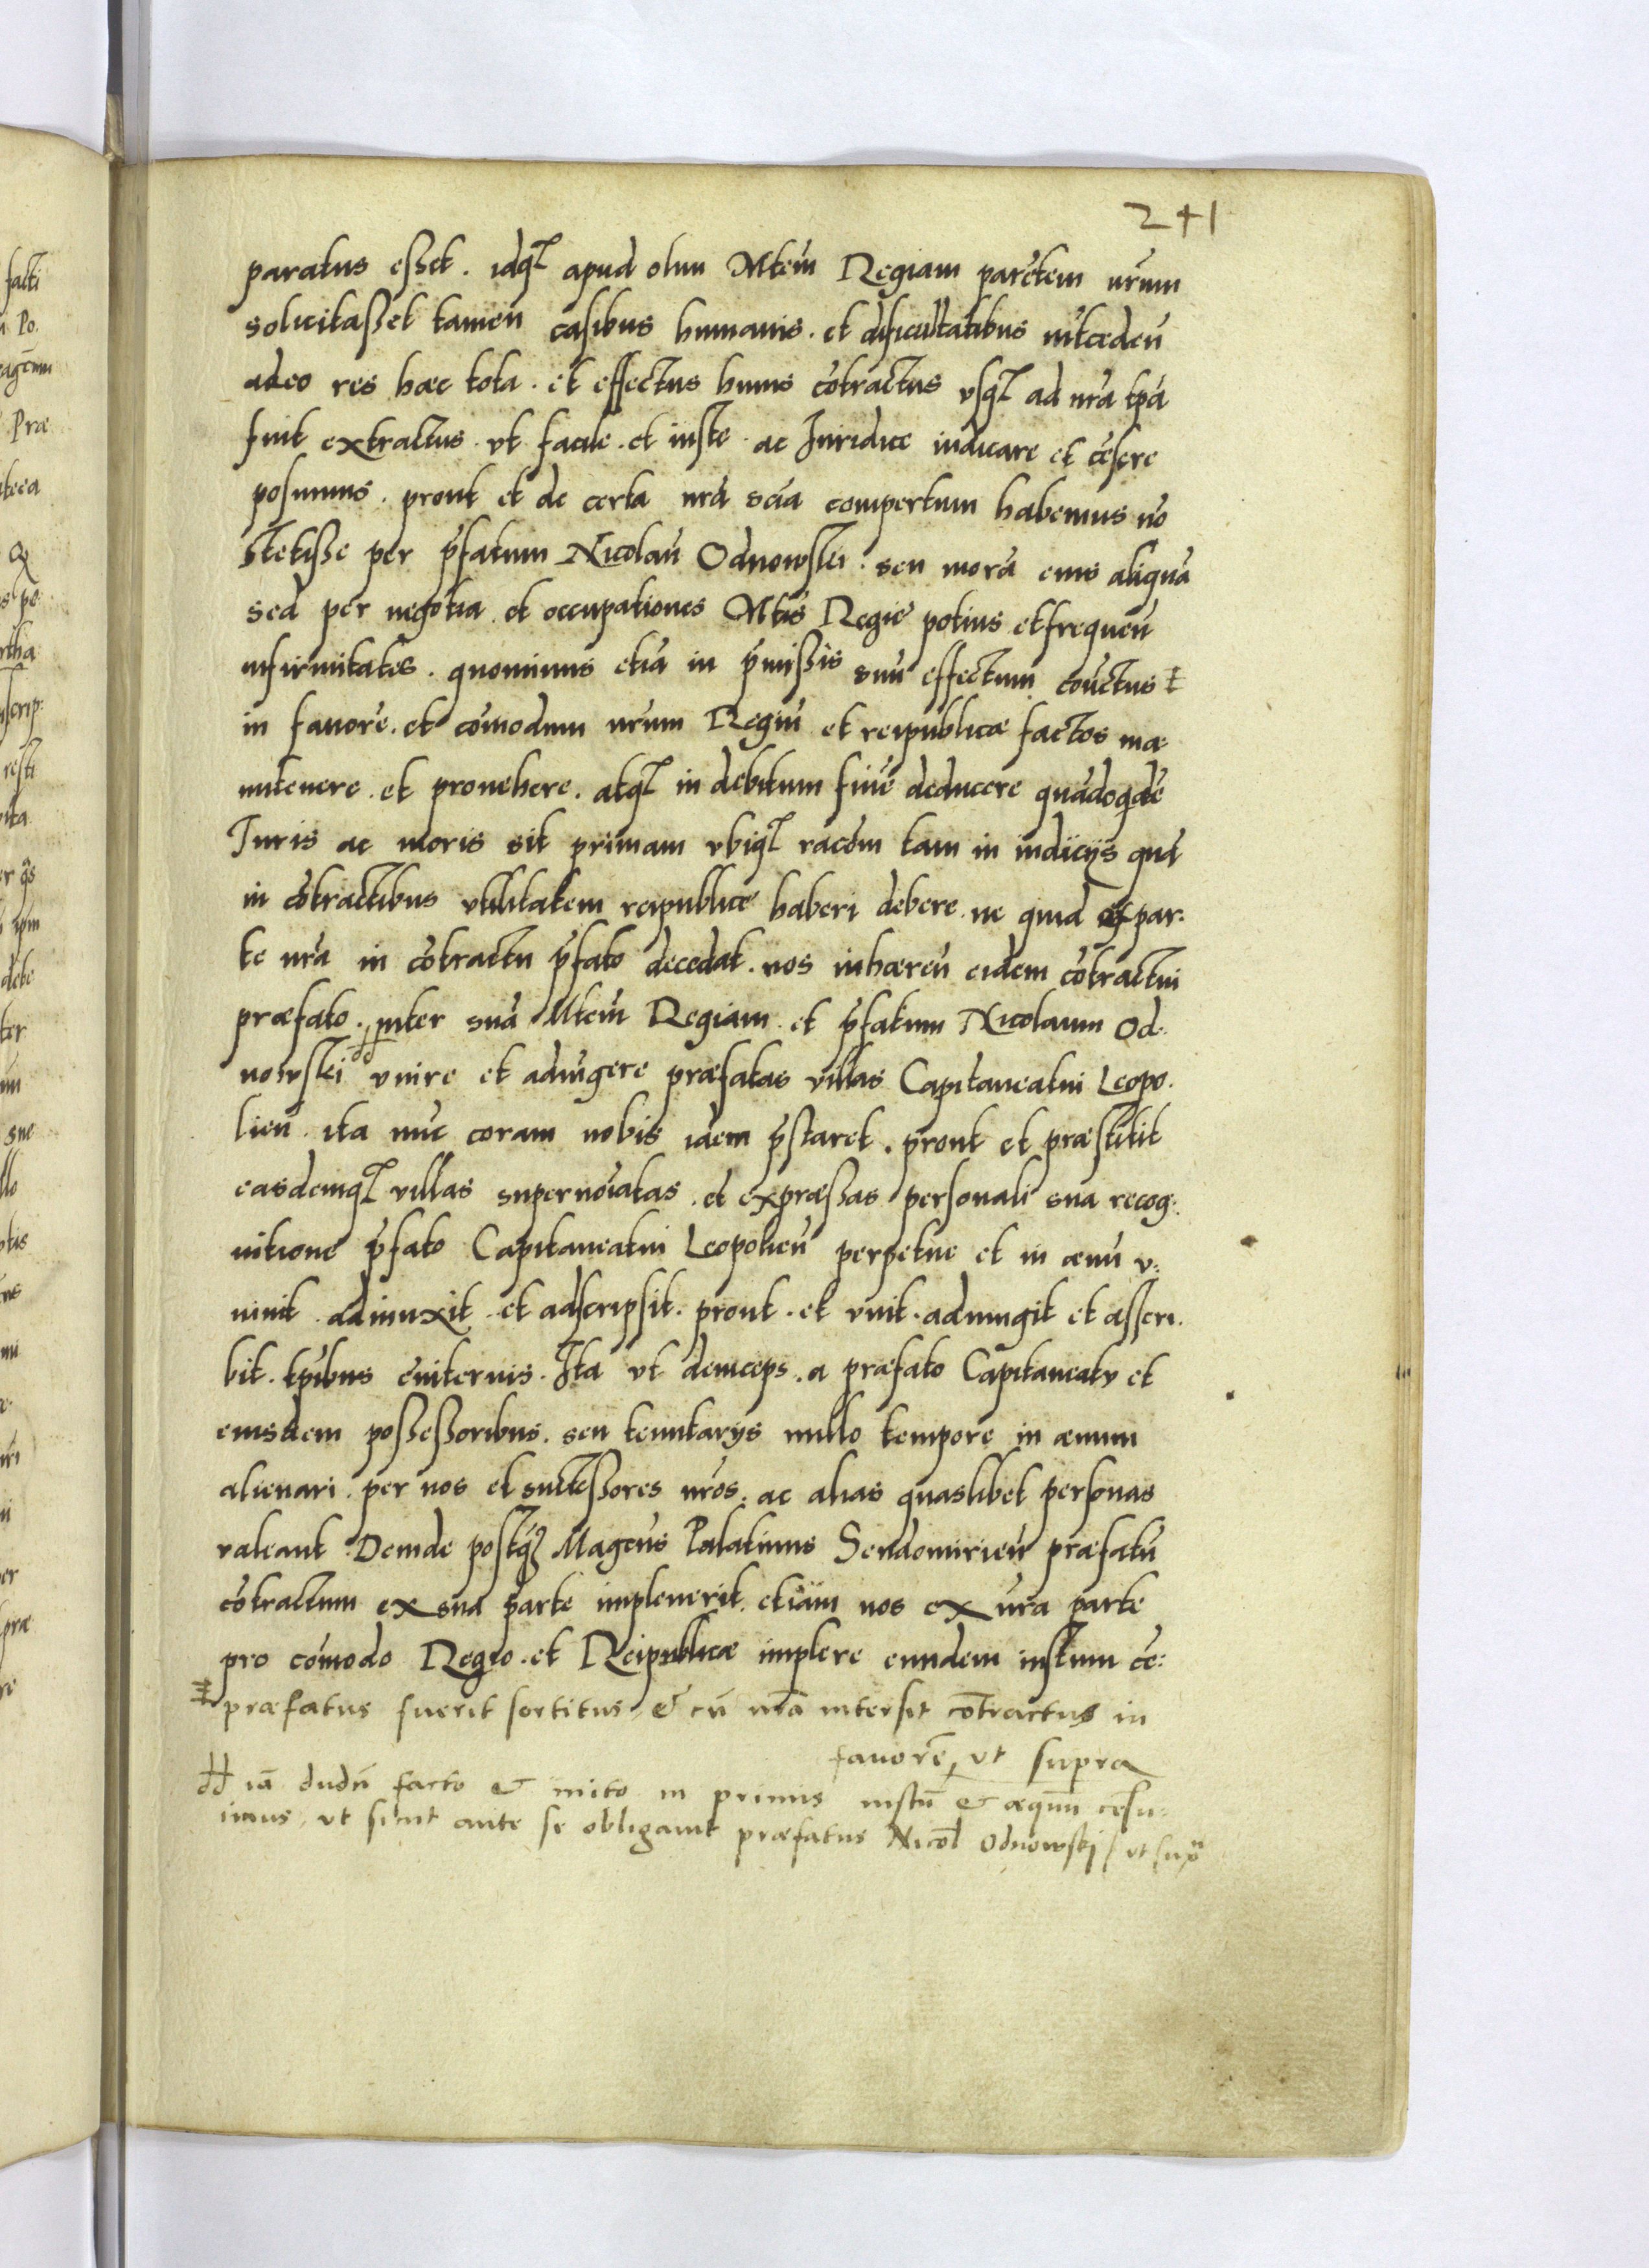 241
paratus esset . idq apud olim Mtem Regiam parētem nrum
solicitasset tamen casibus humanis . et dificultatibus intceden
adeo res hæc tota . et effectus huius cōtractus vsq ad nra tpa
fuit extractus . vt facile . et iuste . ac Iuridice iudicare et cēsere
posumus . prout et de certa nra scia compertum habemus nō
stetisse per pfatum Nicolaū Odnowski . seu morā eius aliquā
sed per negotia . et occupationes Mtis Regie potius et frequen
infirmitates . quominus etiā in pmissis suū effectum cōtctus ‡
in fauore . et cōmodum nrum Regiū et reipublicæ factos ma
nutenere . et prouehere . atq in debitum finē deducere quādoqdē
Iuris ac moris sit primam vbiq racōm tam in iudicijs quā
in cōtractibus vtilitatem reipublice haberi debere . ne quid ex par:
te nra in cōtractu pfato decedat . nos inhæren eidem cōtractui
præfato . inter suā Mtem Regiam . et pfatum Nicolaum Od:
nowski vnire et adiūgere præfatas villas Capitaneatui Leopo:
lien . ita nūc coram nobis idem pstaret . prout et præstitit
easdemq villas supernoīatas . et expræssas personali sua recog:
nitione pfato Capitaneatui Leopolien perpetue et in æuū v:
niuit . adiunxit . et adscripsit . prout . et vnit . adiungit et asscri:
bit . tpibus euiternis . Ita vt deinceps . a præfato Capitaneatv et
eiusdem possessoribus . seu tenutarijs nullo tempore in æuum
alienari . per nos et suctessores nros . ac alias quaslibet personas
valeant . Deinde postq Magcus Palatinus Sendomirien præfatū
cōtractum ex sua parte impleuerit . etiam nos ex nra parte
pro cōmodo Regio . et Reipublicæ implere eundem iustum cē:
‡ præfatus fuerit sortitus, & cū nrā intersit cōtractus in
fauorē, vt supra
iā dudū facto & inito in primis iustū & æquū cēsu:
imus, vt sicut ante se obligauit præfatus Nicol Odnowski / vt sup